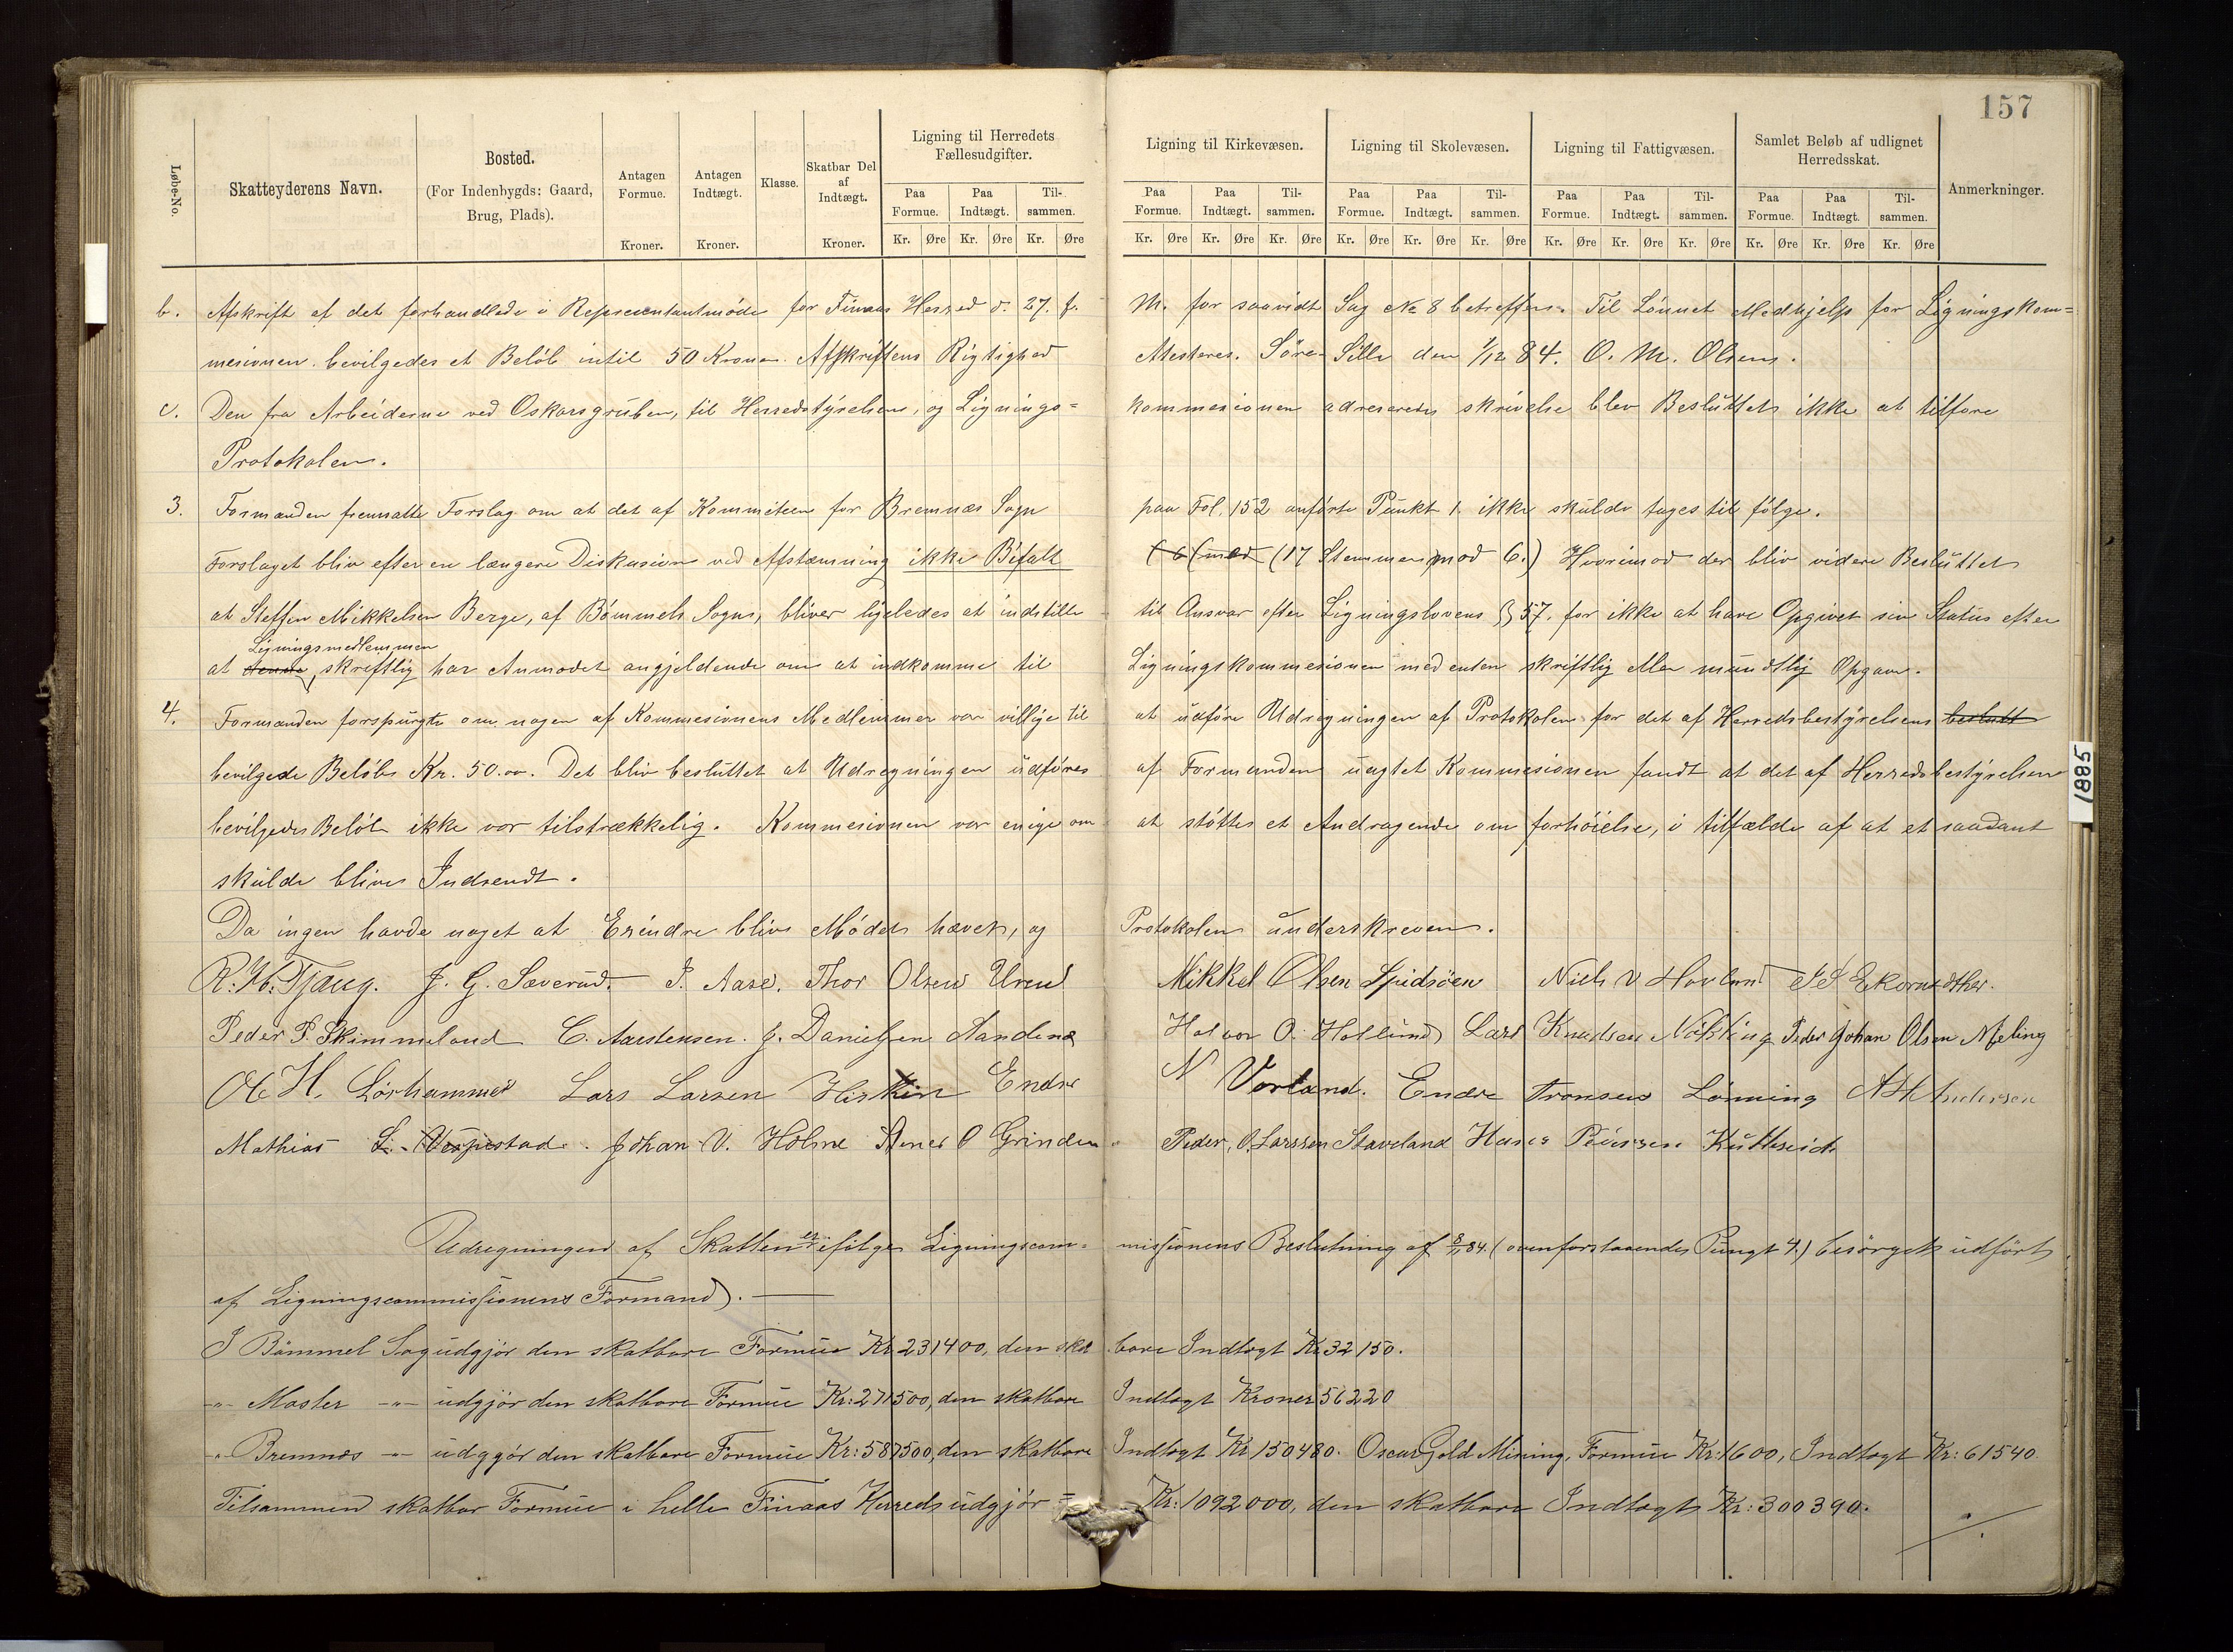 157
Løbe-No.
Skatteyderens Navn.
Bosted.
(For Indenbygds: Gaard, Brug, Plads).
Antagen Formue.
Kroner.
Antagen Indtægt.
Kroner.
Klasse.
Skatbar Del af Indtægt.
Kroner.
Ligning til Herredets Fællesudgifter.
Ligning til Kirkevæsen.
Ligning til Skolevæsen.
Ligning til Fattigvæsen.
Samlet Beløb af udlignet Herredsskat.
Anmerkninger.
Paa Formue. Paa Indtægt. Til-sammen. Paa Formue. Paa Indtægt. Til-sammen. Paa Formue. Paa Indtægt. Til-sammen. Paa Formue. Paa Indtægt. Til-sammen. Paa Formue. Paa Indtægt. Til-sammen.
Kr. Øre Kr. Øre Kr. Øre Kr. Øre Kr. Øre Kr. Øre Kr. Øre Kr. Øre Kr. Øre Kr. Øre Kr. Øre Kr. Øre Kr. Øre Kr. Øre Kr. Øre
b. Afskrift af det forhandlede i Representantmøde for Finaas Herred d. 27. f. M. for saavidt Sag No 8 betreffer. Til Lønnet Medhjelp for Ligningskom=
mesionen bevilgedes et Beløb intil 50 Kroner. Afskriftens Rigtighed Atesteres. Søre Sille den 1/12 84. O. M. Olsen.
c. Den fra Arbeiderne ved Oskarsgruben, til Herredstyrelsen, og Lignings= kommesionen adreserede skrivelse blev Besluttet ikke at tilføre
Protokolen.
3. Formanden fremsatte Forslag om at det af Kommiteen for Bremnæs Sogn paa Fol. 152 anførte Punkt 1. ikke skulde tages til følge.
Forslaget bliv efter en længere Diskusion ved Afstæmning ikke Bifalt (6 (med (17 Stemmer mod 6.) Hvorimod der bliv videre Besluttet
at Steffen Mikkelsen Berge, af Bømmels Sogn, bliver ligeledes at indstille til Ansvar efter Ligningslovens § 57. for ikke at have Opgivet sin Status efter
Ligningsmedlemmen
at denne, skriftlig har Anmodet angjeldende om at indkomme til Ligningskommesionen med enten skriftlig eller mundtlig Opgave.
4. Formanden forspurgte om nogen af Kommesionens Medlemmer var villige til at udføre Udregningen af Protokolen for det af Herredsbestyrelsen beslutt
bevilgede Beløb Kr. 50.00. Det bliv besluttet at Udregningen udføres af Formanden uagtet Kommesionen fandt at det af Herredsbestyrelsen
bevilgede Beløb ikke var tilstrækkelig. Kommesionen var enige om at støtte et Andragende om forhøielse, i tilfælde af at et saadant
skulde blive Indsendt.
Da ingen havde noget at Erindre bliv Mødet hævet, og Protokolen underskreven.
R. H. Tjang. J. G. Sæverud. J. Aase. Thor Olsen Uren Mikkel Olsen Spidsøen Niels V Hovland
Peder P. Skimmeland C. Aarstensen. J. Danielsen Halvor O. Hollund Lars Knudsen Peder Johan Olsen Mæling
Ole H. Lars Larsen Endre N Vorland. Endre Tronsen Lønning
Mathias L. Johan V. Holme O Grinden Peder O. Larssen Staveland Hans
Udregningen af Skatten er ifølge Ligningscom= missionens Beslutning af 8/1 84. (ovenforstaaende Pungt 4.) besørget udført
af Ligningscommissionens Formand.
I Bømmel Sog udgjør den skatbare Formue Kr 231400, den skat bare Indtægt Kr 32150.
-"- Moster -"- udgjør den skatbare Formue Kr: 271500, den skatbare Indtægt Kroner 56220
" Bremnes -"- udgjør den skatbare Formue Kr: 587500, den skatbare Indtægt Kr 150480. Oscar Gold Mining, Formue Kr: 1600, Indtægt Kr: 61540.
Tilsammen skatbar Formue i helle Finaas Herred udgjør = Kr: 1092000, den skatbare Indtægt Kr: 300390.
1885